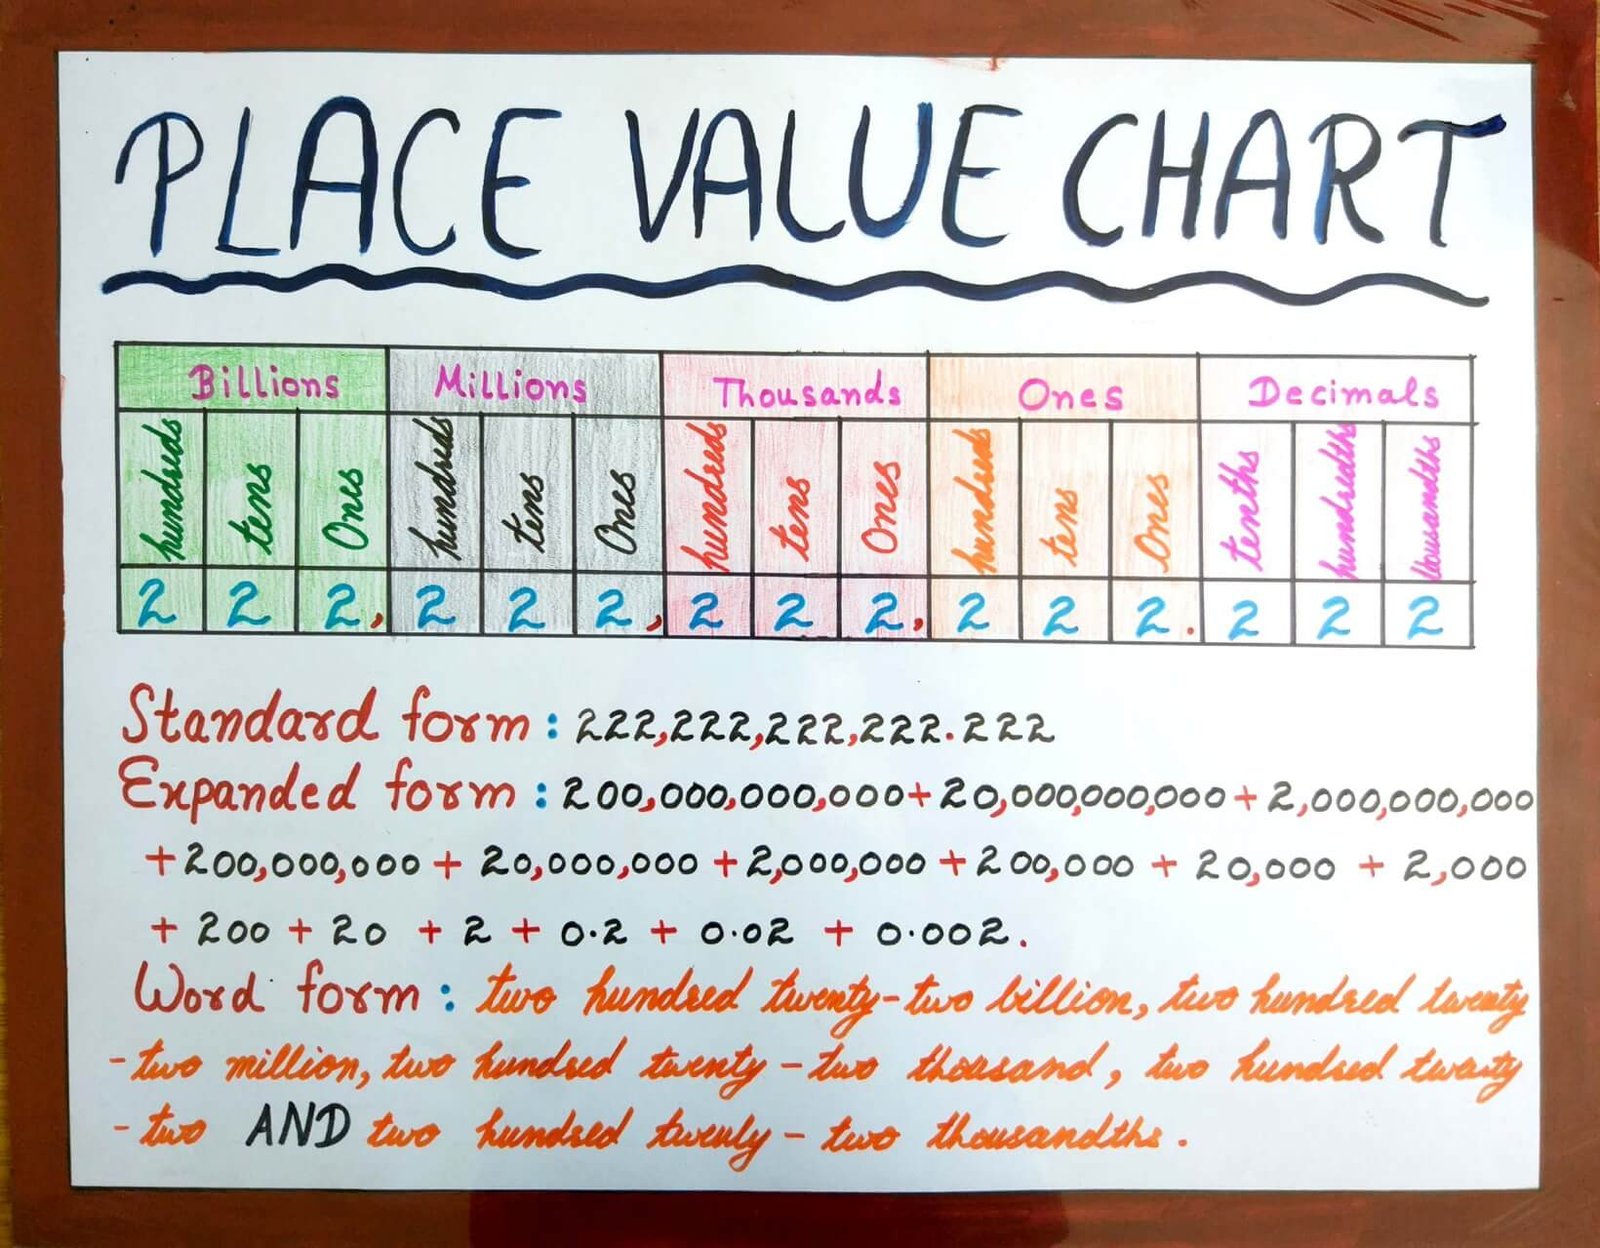 PLACE VALUE CHART
Billions Millions Thousands Ones Decimals
hundreds tens Ones hundreds tens Ones hundreds tens Ones hundreds tens Ones tenths hundredths thousandths
2 2 2, 2 2 2, 2 2 2, 2 2 2. 2 2 2
Standard form: 222,222,222,222.222
Expanded form: 200,000,000,000+20,000,000,000+2,000,000,000
+200,000,000+ 20,000,000 +2,000,000 +200,000 + 20,000 + 2,000
+ 200 + 20 + 2 + 0.2 + 0.02 + 0.002.
Word form: two hundred twenty-two billion, two hundred twenty
-two million, two hundred twenty-two thousand, two hundred twenty
-two AND two hundred twenty-two thousandths.